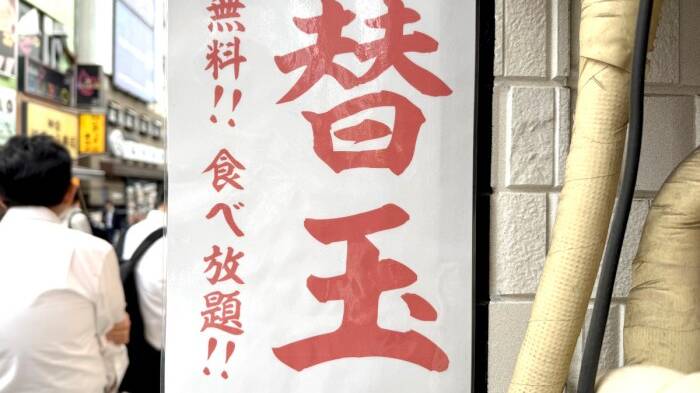 替玉
無料!! 食べ放題!!